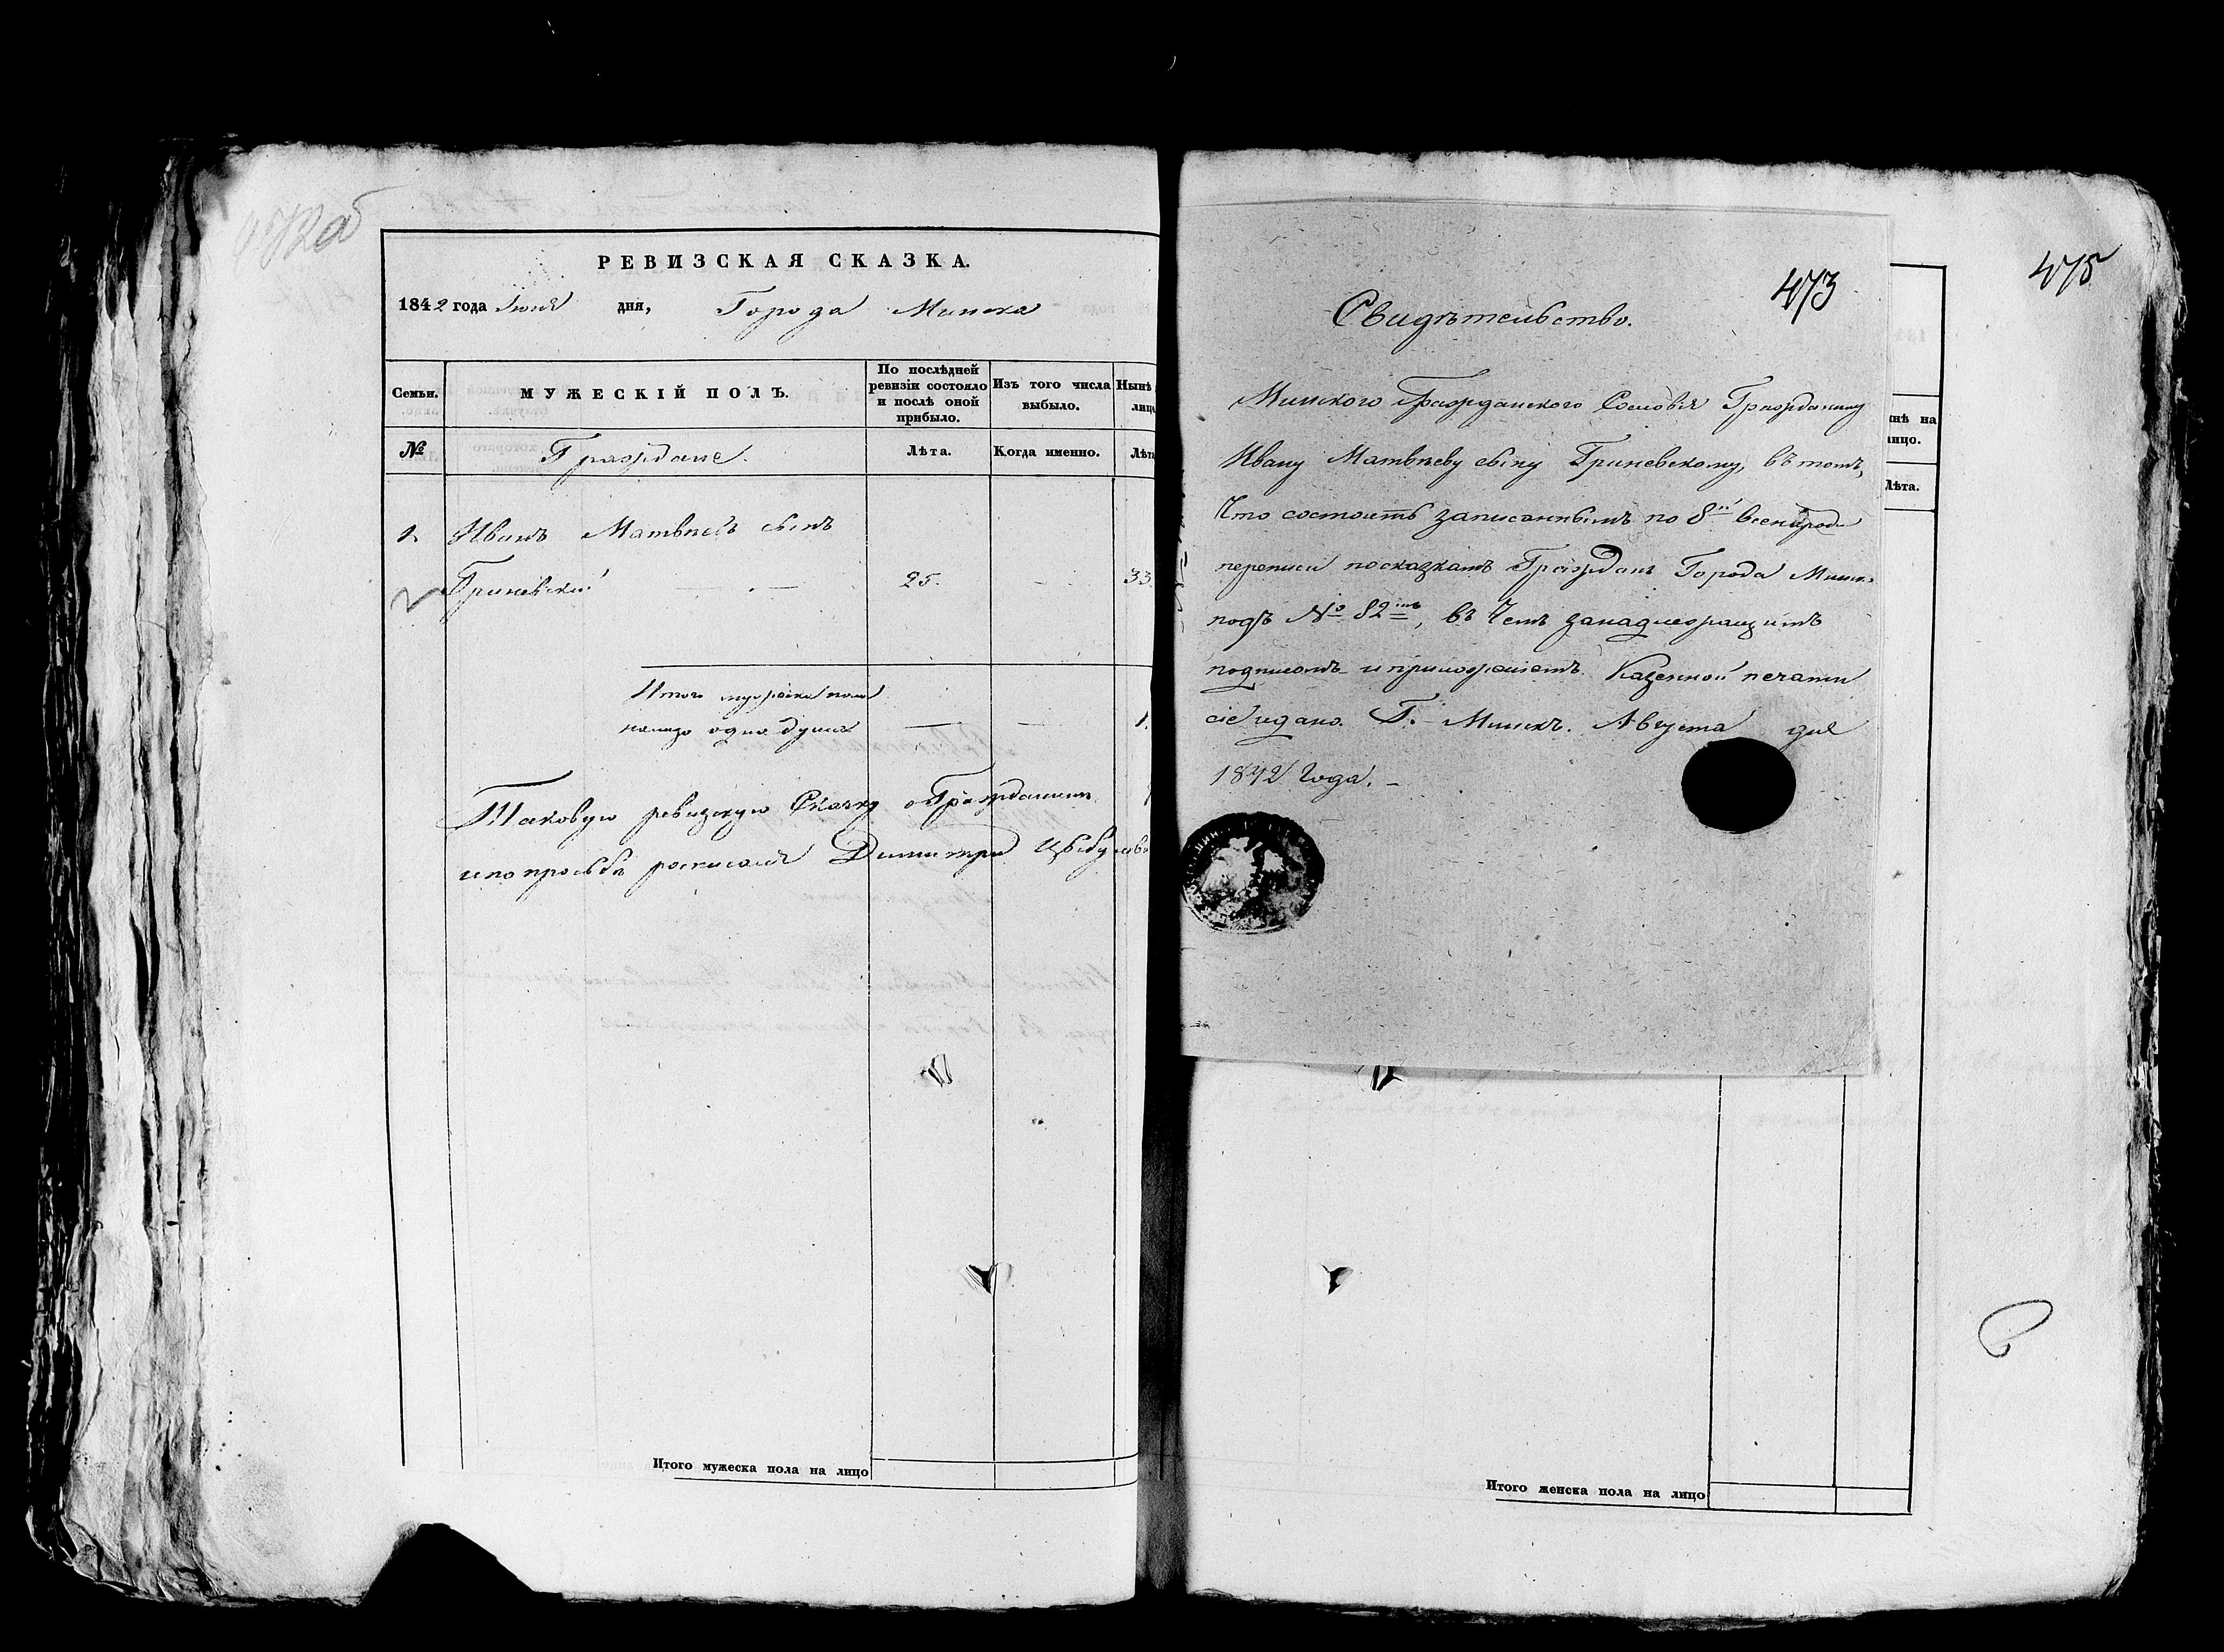 472об
РЕВИЗСКАЯ СКАЗКА.
1842 года Июля дня, Города Минска
Семьи. МУЖЕСКІЙ ПОЛЪ. По послѣдней ревизіи состояло и послѣ оной прибыло. Изъ того числа выбыло. Нынѣ лицо
№ Граждане. Лѣта. Когда именно. Лѣта
1. Иванъ Матвѣевъ сынъ
Гриневскій 25. 33
Итого мужеска пола
налицо одна душа 1.
Таковую ревизскую Скаску о Гражданинѣ
и по прозьбѣ росписался Димитри
Итого мужеска пола на лицо
475
473
Свидѣтельство.
Минского Гражданского Сословія Гражданину
Ивану Матвѣеву сыну Гриневскому, въ томъ,
Что состоитъ записаннымъ по 8й всенарод
переписи посказкамъ Граждан Города Минск
подъ № 82мъ, въ Чемъ за надлежащимъ
подписомъ и приложеніемъ Казенной печати
сіе и дано. Г. Минскъ. Августа дня
1842 Года. –
нѣ на
лицо.
Лѣта.
Итого женска пола на лицо